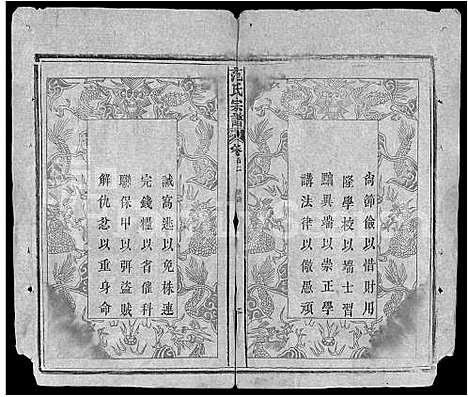 尙節儉以惜財用
隆學校以端士習
黜異端以崇正學
講法律以儆愚頑
范氏宗譜
誡窩逃以免株連
完錢糧以省催科
聯保甲以弭盜賊
解仇忿以重身命